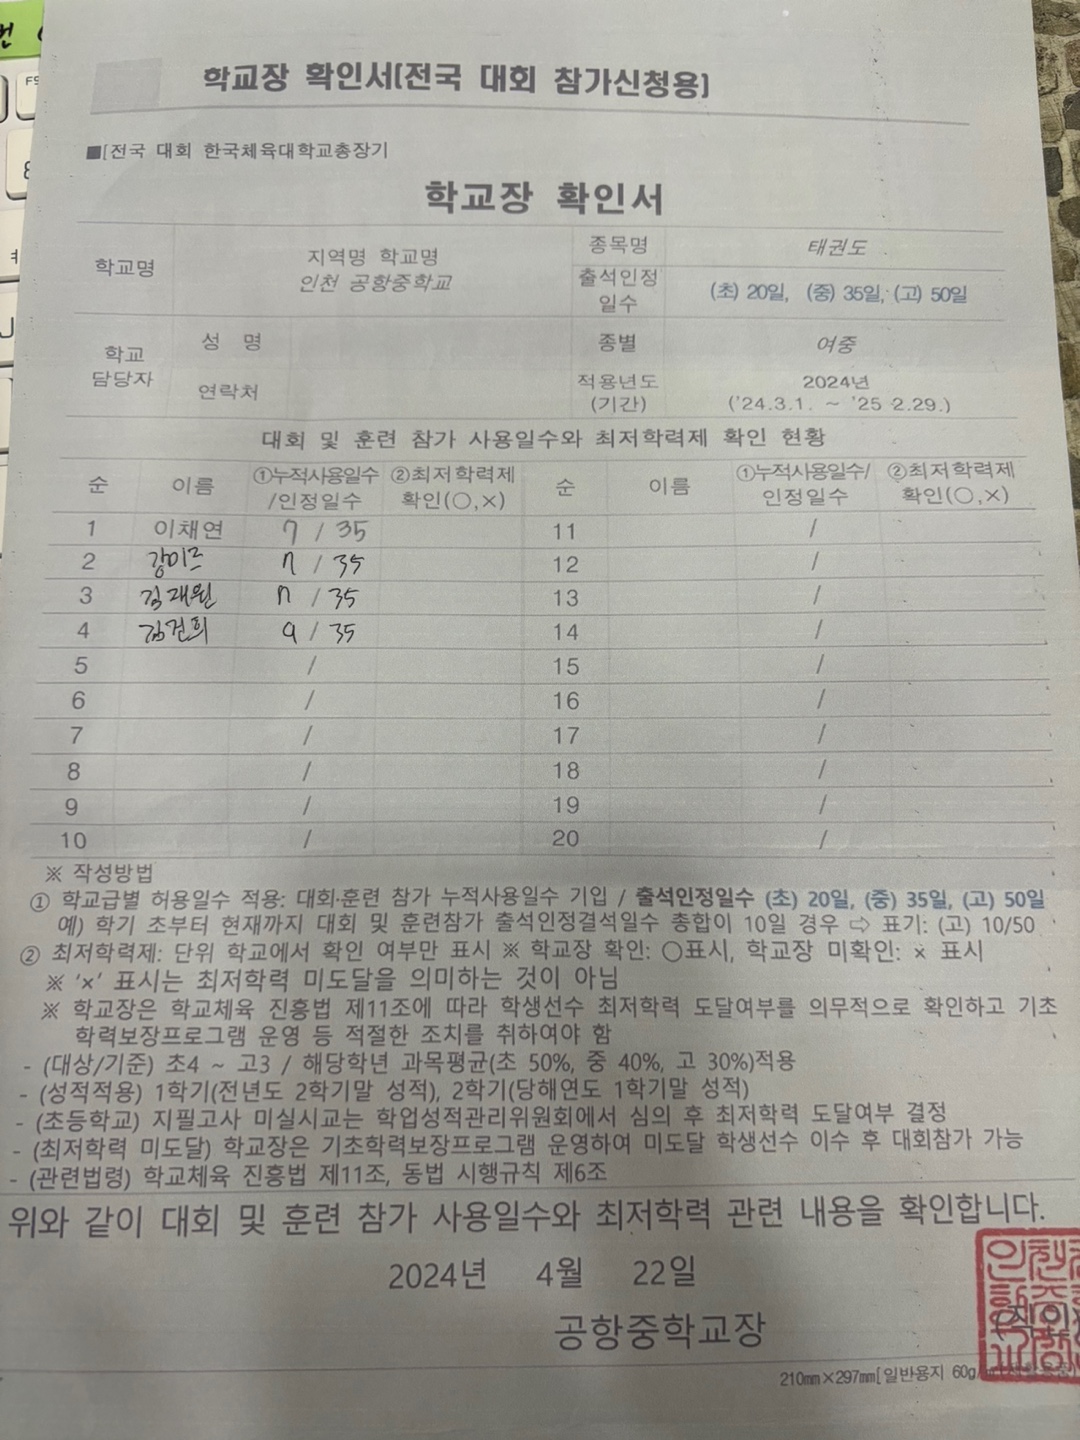 학교장 확인서[전국 대회 참가신청용]
■[전국 대회 한국체육대학교총장기
학교장 확인서
학교명
지역명 학교명
인천 공항중학교
종목명
태권도
출석인정
일수
(초) 20일, (중) 35일, (고) 50일
학교
담당자
성 명
연락처
종별
여중
적용년도
(기간)
2024년
('24.3.1. ~ '25 2.29.)
대회 및 훈련 참가 사용일수와 최저학력제 확인 현황
순 이름 ①누적사용일수/인정일수 ②최저학력제 확인(○,×) 순 이름 ①누적사용일수/인정일수 ②최저학력제 확인(○,×)
1 이채연 7 / 35 11 /
2 강미르 7 / 35 12 /
3 김재원 7 / 35 13 /
4 김건희 9 / 35 14 /
5 / 15 /
6 / 16 /
7 / 17 /
8 / 18 /
9 / 19 /
10 / 20 /
※ 작성방법
① 학교급별 허용일수 적용: 대회·훈련 참가 누적사용일수 기입 / 출석인정일수 (초) 20일, (중) 35일, (고) 50일
예) 학기 초부터 현재까지 대회 및 훈련참가 출석인정결석일수 총합이 10일 경우 ⇨ 표기: (고) 10/50
② 최저학력제: 단위 학교에서 확인 여부만 표시 ※ 학교장 확인: ○표시, 학교장 미확인: × 표시
※ '×' 표시는 최저학력 미도달을 의미하는 것이 아님
※ 학교장은 학교체육 진흥법 제11조에 따라 학생선수 최저학력 도달여부를 의무적으로 확인하고 기초
학력보장프로그램 운영 등 적절한 조치를 취하여야 함
- (대상/기준) 초4 ~ 고3 / 해당학년 과목평균(초 50%, 중 40%, 고 30%)적용
- (성적적용) 1학기(전년도 2학기말 성적), 2학기(당해연도 1학기말 성적)
- (초등학교) 지필고사 미실시교는 학업성적관리위원회에서 심의 후 최저학력 도달여부 결정
- (최저학력 미도달) 학교장은 기초학력보장프로그램 운영하여 미도달 학생선수 이수 후 대회참가 가능
- (관련법령) 학교체육 진흥법 제11조, 동법 시행규칙 제6조
위와 같이 대회 및 훈련 참가 사용일수와 최저학력 관련 내용을 확인합니다.
2024년 4월 22일
공항중학교장
(직인)
210㎜×297㎜[일반용지 60g/